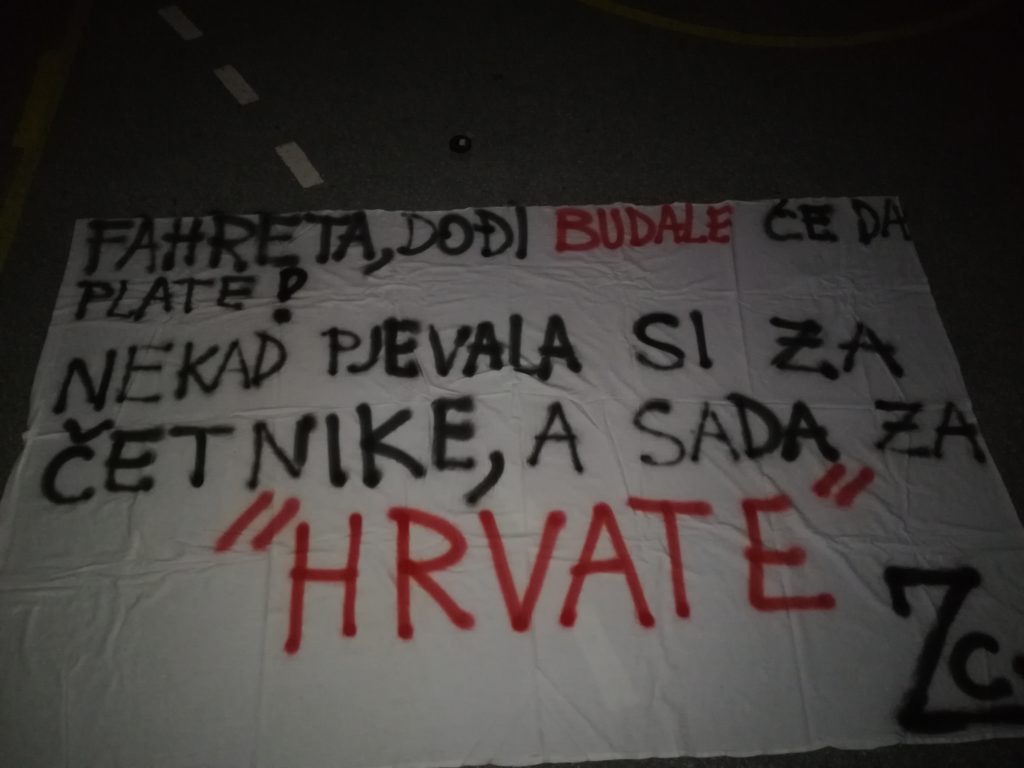 FAHRETA, DOĐI BUDALE ĆE DA
PLATE!
NEKAD PJEVALA SI ZA
ČETNIKE, A SADA ZA
"HRVATE"
Zc.